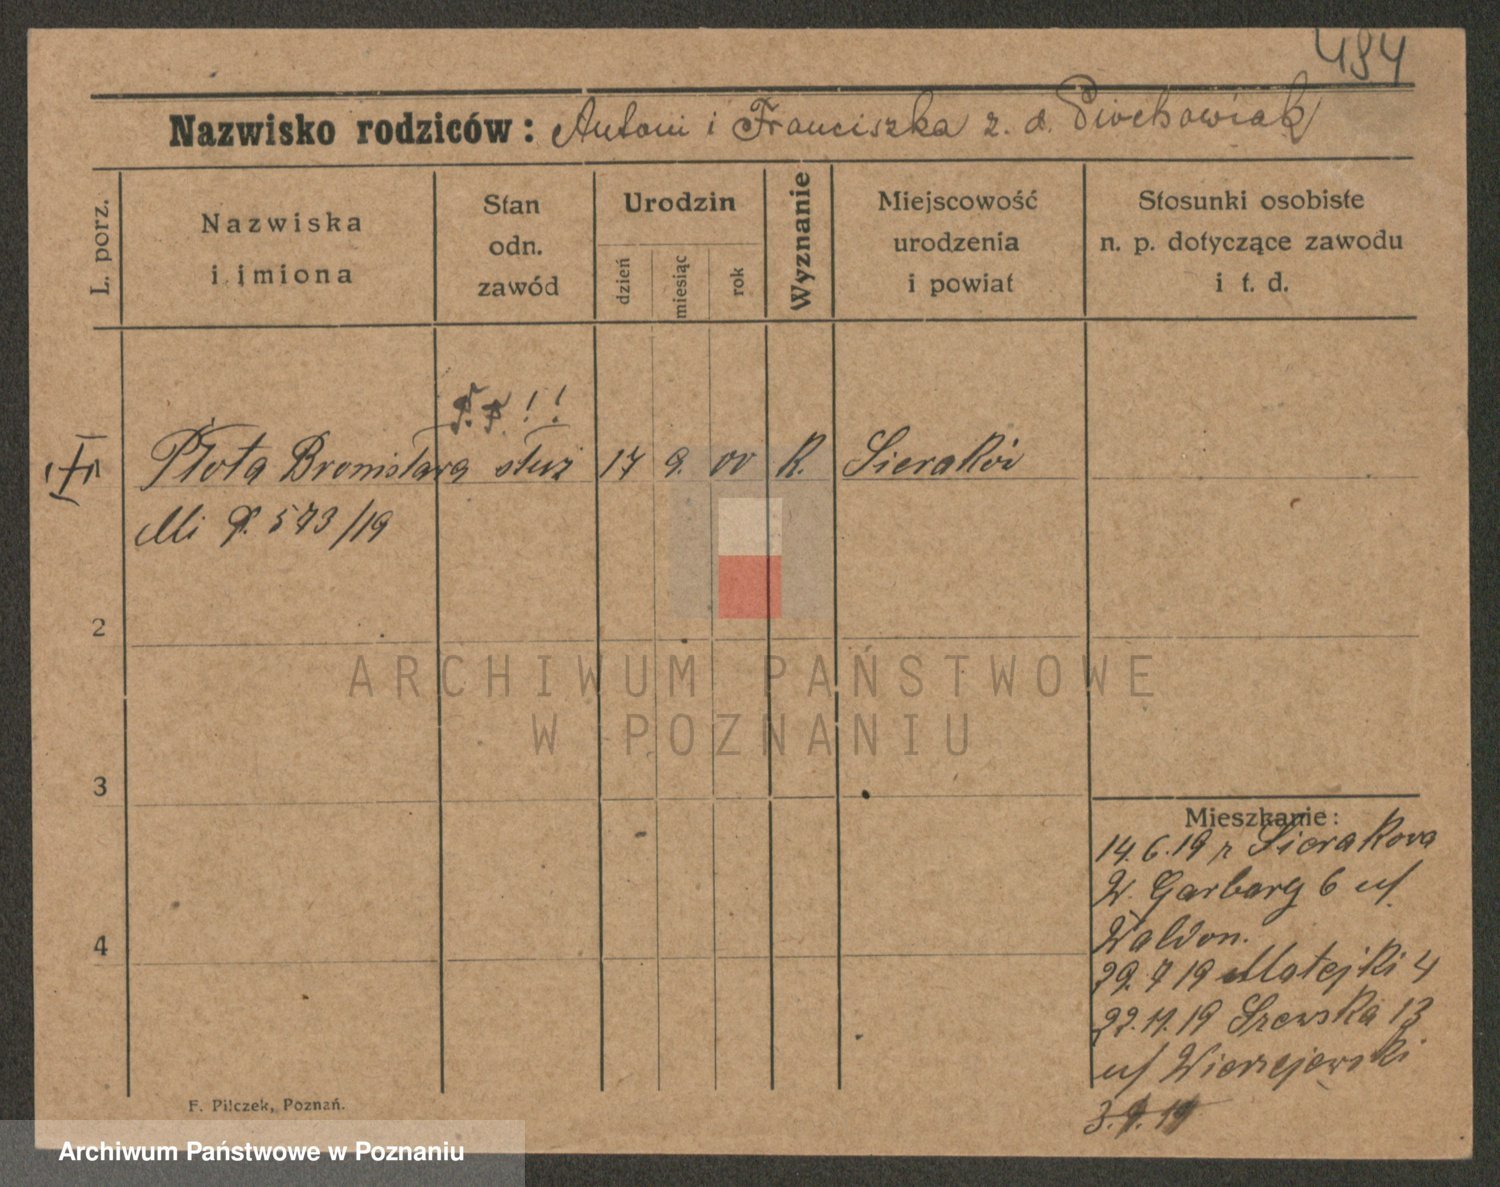 494
Nazwisko rodziców: Antoni i Franciszka z. d. Piechowiak
L. porz.
Nazwiska
i imiona
Stan
odn.
zawód
Urodzin
dzień
miesiąc
rok
Wyznanie
Miejscowość
urodzenia
i powiat
Stosunki osobiste
n. p. dotyczące zawodu
i t. d.
Płota Bronisława służ 17 9. 00 K. Sieraków
573/19
2
3
4
Mieszkanie:
14.6.19 z Sierakowa
W. Garbary 6 u/
Waldon.
29.7 19 Matejki 4
22.11.19 Szewska 13
u/ Wierzejewski
ARCHIWUM PAŃSTWOWE
W POZNANIU
F. Pilczek, Poznań.
Archiwum Państwowe w Poznaniu